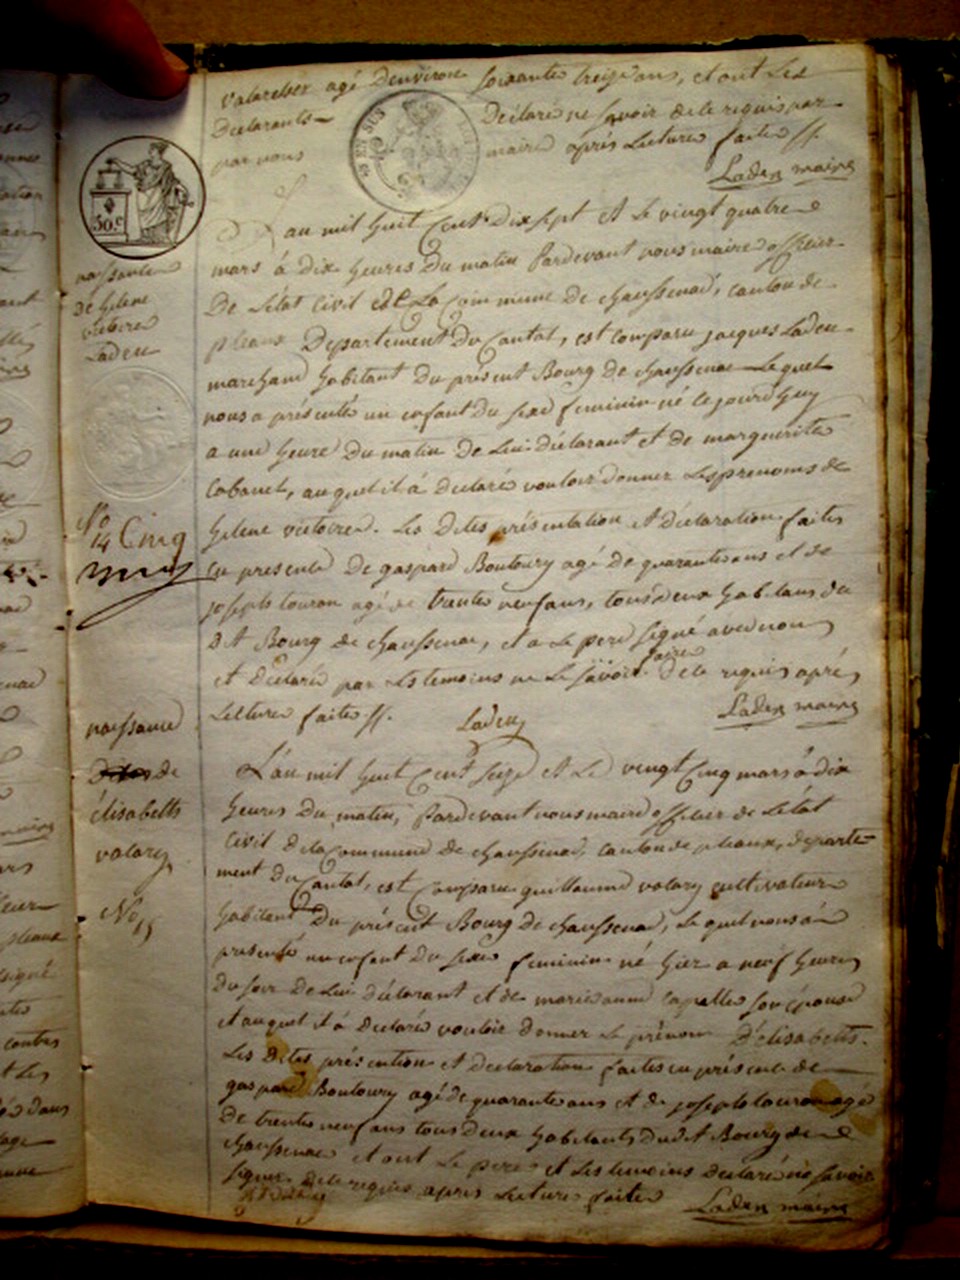 agé denviron soixante treize ans, et ont les
declarants declaré ne savoir de le requis par
par nous maire après lecture faite //.
Laden maire
50.c
EN SUS
naissance
de helene
victoire
Laden
No
14 Cinq
L'an mil huit cent dix sept et le vingt quatre
mars à dix heures du matin pardevant nous maire officier
de l'état civil de la commune de chaussenac, canton de
pleaux Departement du Cantal, est comparu jacques Laden
marchand habitant du présent Bourg de chaussenac Lequel
nous a présenté un enfant du sexe feminin né le jourdhuy
a une heure du matin de Lui déclarant et de marguerite
Cabanel, auquel il à declaré vouloir donner Les prenoms de
helene victoire. Les dites présentation et déclaration faites
en presence de gaspard Boutoury agé de quarante ans et de
joseph touron agé de trente neuf ans, tous deux habitans du
dit Bourg de chaussenac, et a le pere signé avec nous
et declaré par les temoins ne le savoir faire de le requis après
Lecture faite //. Laden Laden maire
naissance
de
élisabeth
valary
No
15
L'an mil huit cent seize et le vingt cinq mars à dix
heures du matin, pardevant nous maire officier de l'état
civil de la commune de chaussenac, canton de pleaux, departe-
ment du Cantal, est comparu guillaume valary cultivateur
habitant du présent Bourg de chaussenac, le quel nous à
presenté un enfant du sexe feminin né hier a neuf heures
du soir de Lui déclarant et de marie anne capelle son épouse
et auquel il à declaré vouloir donner le prénom D'élisabeth.
Les dites présention et declaration faites en présence de
gaspard Boutoury agé de quarante ans et de joseph touron agé
de trente neuf ans tous deux habitants dudit Bourg de
chaussenac et ont le pere et les temoins declaré ne savoir
signer de le requis apres lecture faite Laden maire